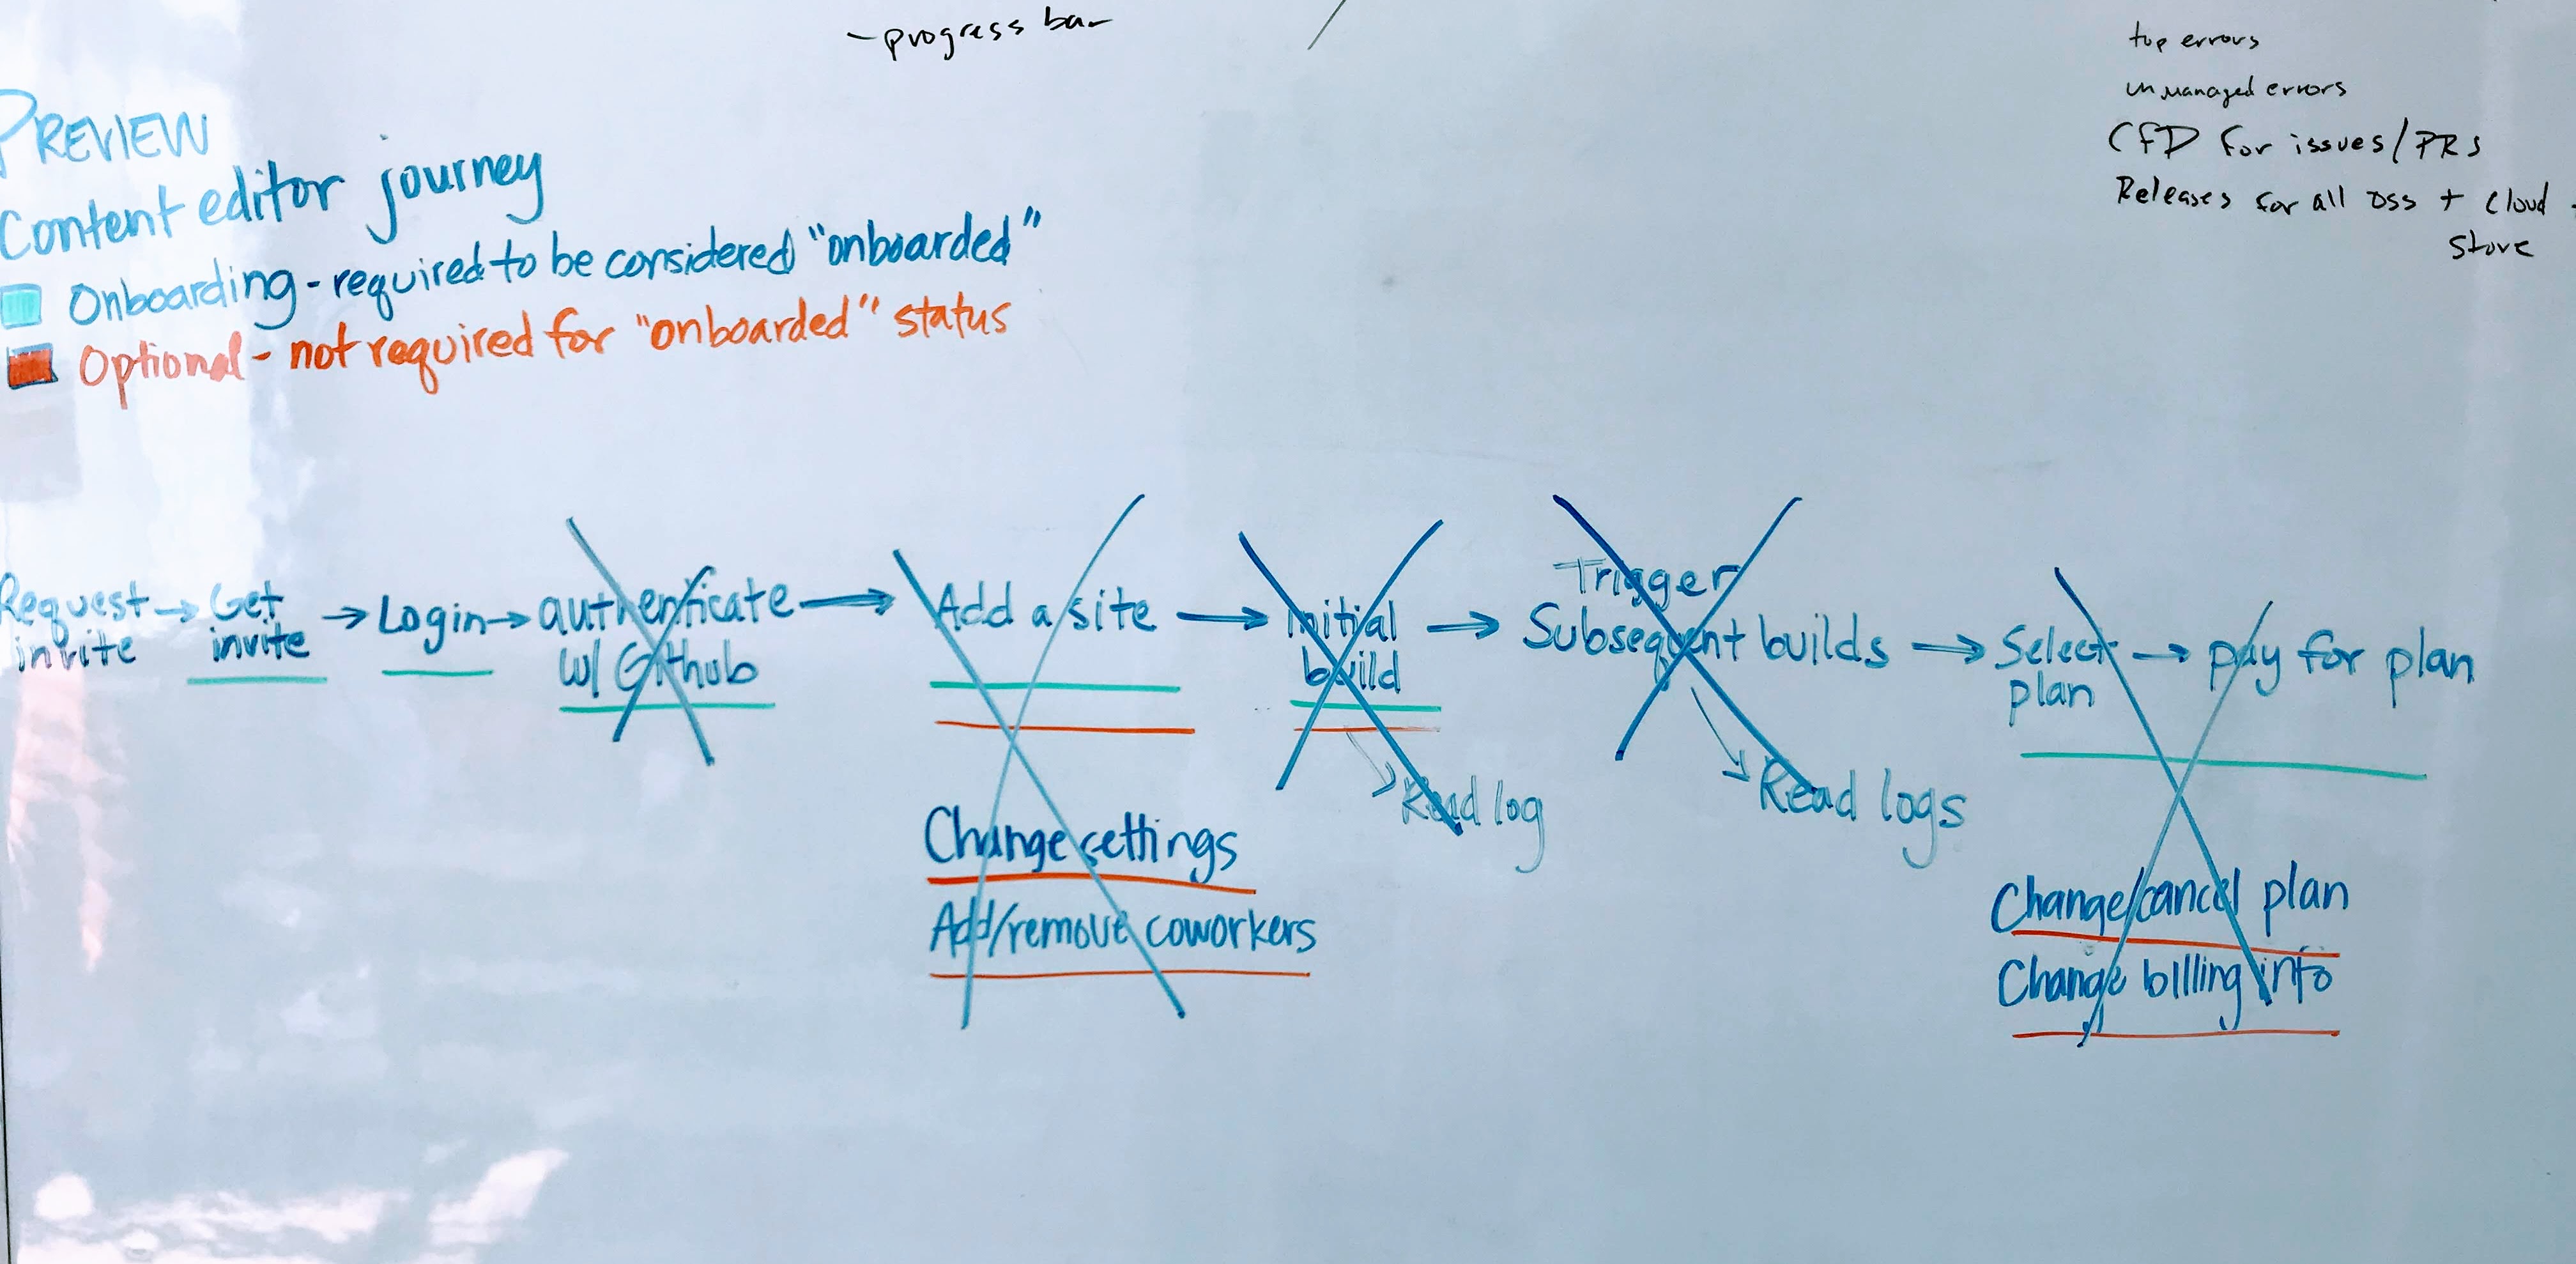 - progress bar
top errors
unmanaged errors
CFD for issues/PRs
Releases for all OSS + Cloud
Store
PREVIEW
Content editor journey
Onboarding - required to be considered "onboarded"
Optional - not required for "onboarded" status
Request invite → Get invite → Login → authenticate w/ Github → Add a site → Initial build → Trigger Subsequent builds → Select plan → pay for plan
Read log
Read logs
Change settings
Add/remove coworkers
Change/cancel plan
Change billing info